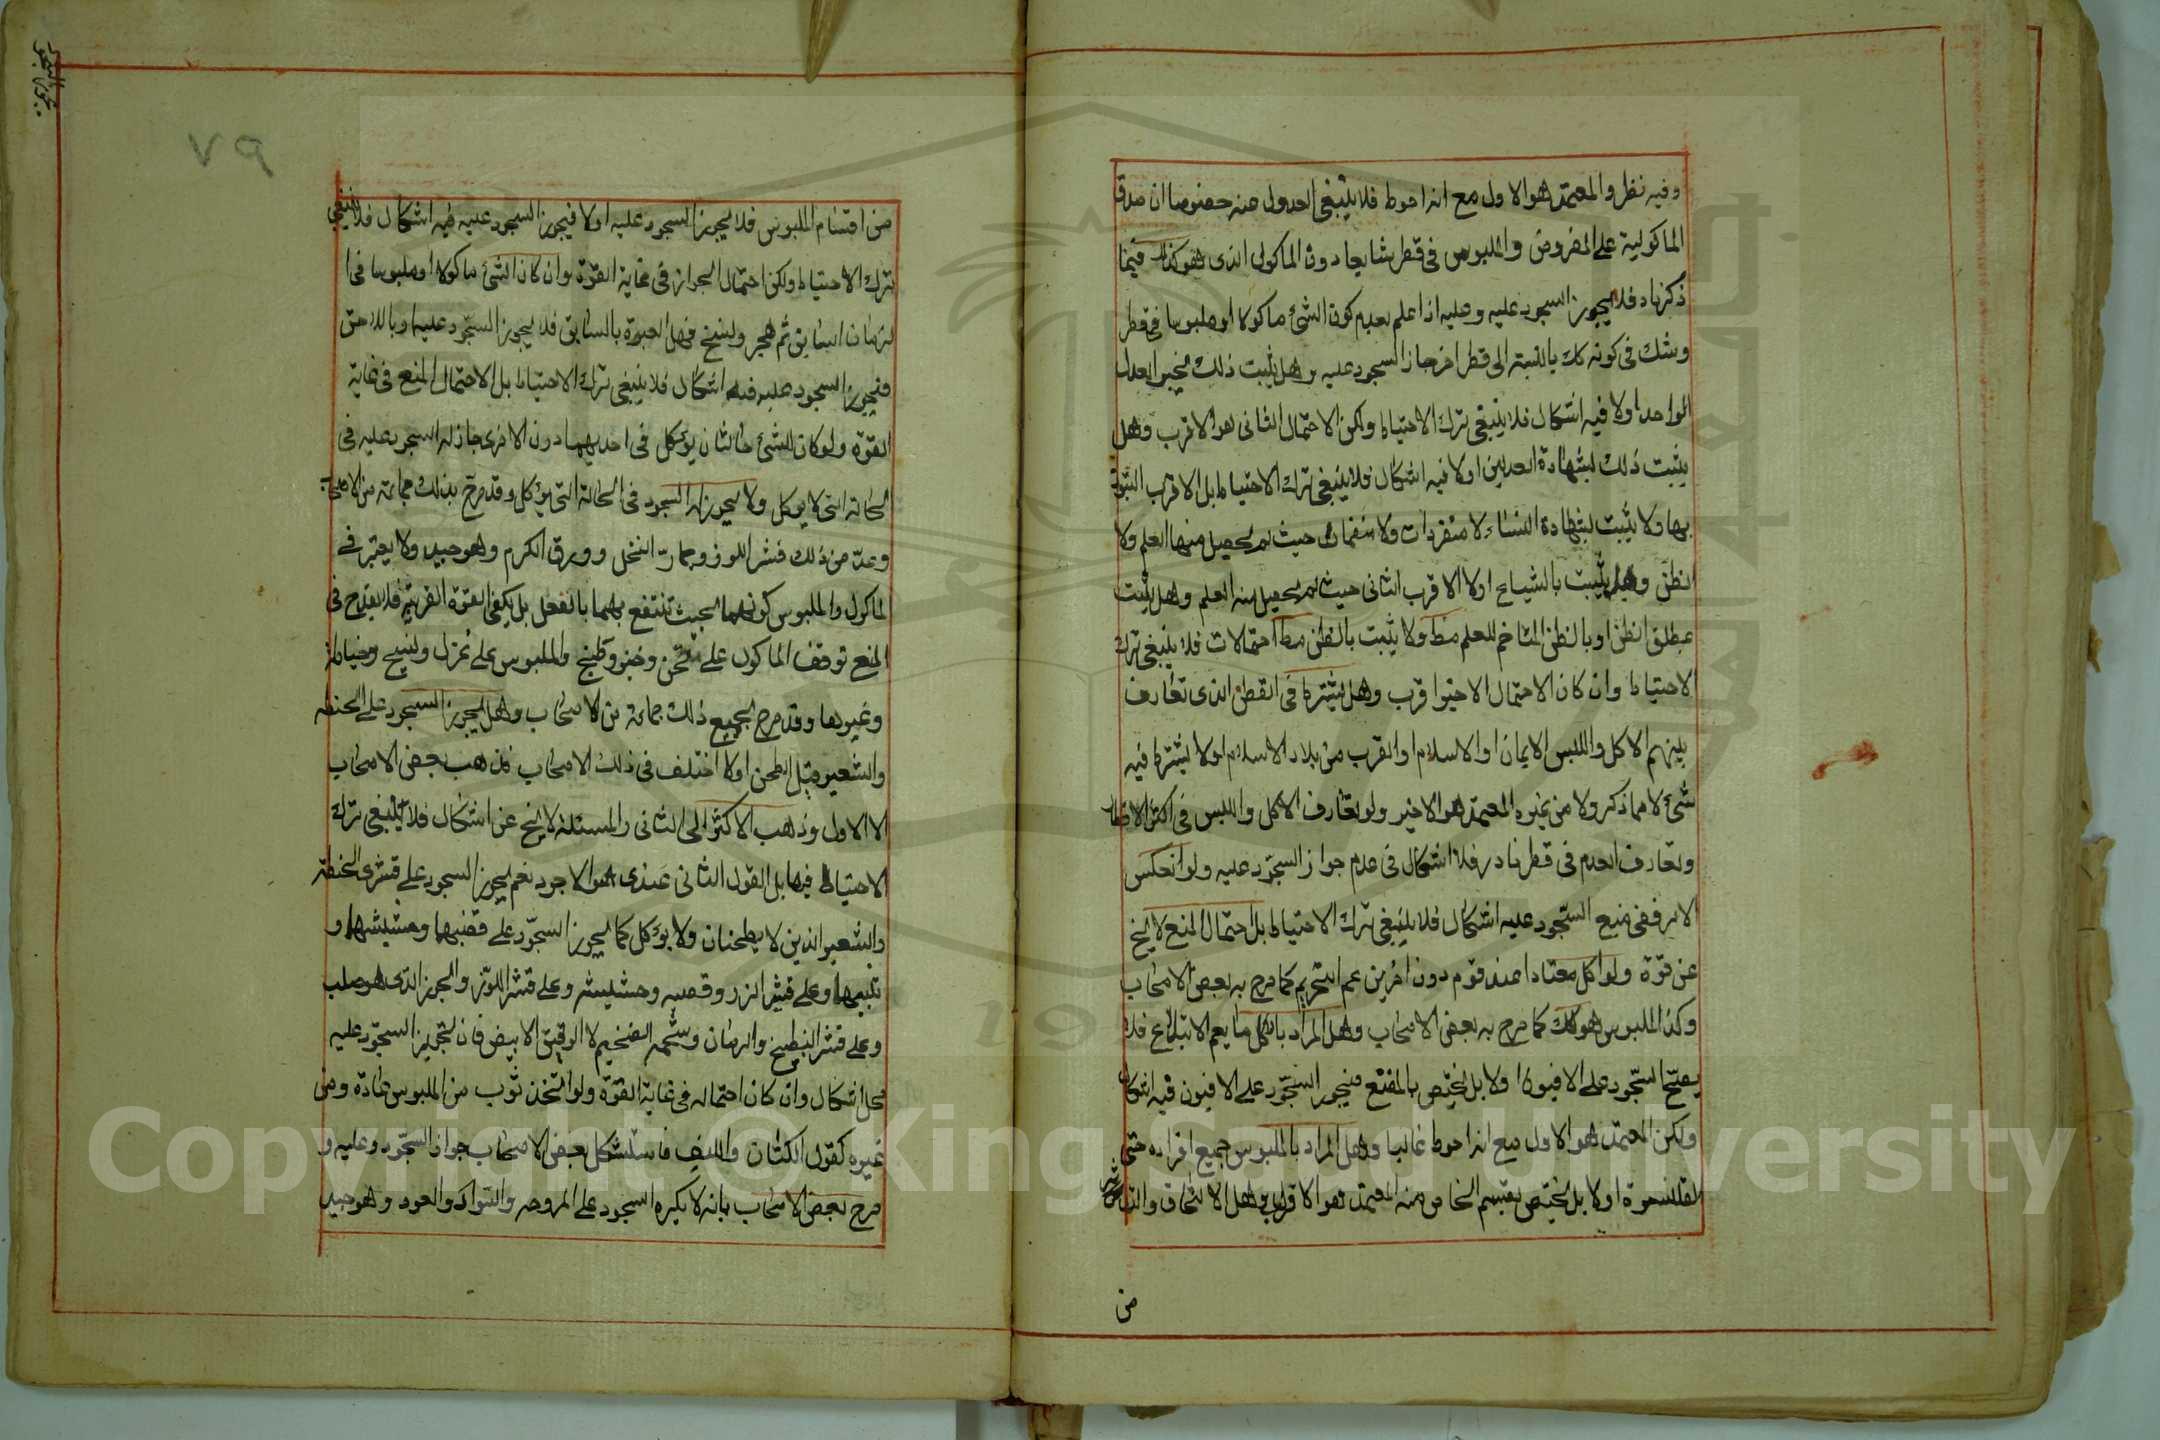 وفيه نظر والمعتمد هو الاول مع انه احوط فلا ينبغى العدول عنه خصوصا ان صدق
الماكولية على المفروض والملبوس فى قطر شايعا دون الماكولى الذى هو كذلك فيما
ذكرناه فلا يجوز السجود عليه وعليه اذا علم بعدم كون الشئ ماكولا او ملبوسا فى قطر
وشك فى كونه كك بالنسبة الى قطر اخر جاز السجود عليه وهل يثبت ذلك بخبر العدل
الواحد او لا فيه اشكال فلا ينبغى ترك الاحتياط ولكن الاحتمال الثانى هو الاقرب وهل
يثبت ذلك بشهادة العدلين او لا فيه اشكال فلا ينبغى ترك الاحتياط بل الاقرب الثبوت
بها ولا يثبت بشهادة النساء لا منفردات ولا منضمات حيث لم يحصل منها العلم ولا
الظن وهل يثبت بالشياع او لا الاقرب الثانى حيث لم يحصل منه العلم وهل يثبت
بمطلق الظن او بالظن المتاخم للعلم مط ولا يثبت بالظن مط احتمالات فلا ينبغى ترك
الاحتياط وان كان الاحتمال الاخير اقرب وهل يشترط فى القطر الذى تعارف
بينهم الاكل واللبس الايمان او الاسلام او القرب من بلاد الاسلام او لا يشترط فيه
شئ لا مما ذكر ولا من غيره المعتمد هو الاخير ولو تعارف الاكل واللبس فى اكثر الاقطار
وتعارف العدم فى قطر نادر فلا اشكال فى عدم جواز السجود عليه ولو انعكس
الامر ففى منع السجود عليه اشكال فلا ينبغى ترك الاحتياط بل احتمال المنع لا يخ
عن قوة ولو اكل معتادا عند قوم دون اخرين عم التحريم كما صرح به بعض الاصحاب
وكذا الملبوس هو كك كما صرح به بعض الاصحاب وهل المراد بالاكل ما يعم الابتلاع فلا
يصح السجود على الافيون او لا بل يختص بالمضغ فيجوز السجود على الافيون فيه اشكال
ولكن المعتمد هو الاول مع انه احوط غالبا وهل المراد بالملبوس جميع افراده حتى
القلنسوة او لا بل يختص بقسم الخاص منه المعتمد هو الاقرب وهل الالتحاف والتدثر
من
٧٩
من اقسام الملبوس فلا يجوز السجود عليه او لا فيجوز السجود عليه فيه اشكال فلا ينبغى
ترك الاحتياط ولكن احتمال الجواز فى غاية القوة وان كان الشئ ماكولا او ملبوسا فى ا
لزمان السابق ثم هجر ونسخ فهل العبرة بالسابق فلا يجوز السجود عليه او باللاحق
فيجوز السجود عليه فيه اشكال فلا ينبغى ترك الاحتياط بل الاحتمال المنع فى غاية
القوة ولو كان للشئ حالتان يؤكل فى احديهما دون الاخرى جاز له السجود عليه فى
الحالة التى لا يوكل ولا يجوز له السجود فى الحالة التى يؤكل وقد صرح بذلك جماعة من الاصحاب
وعد من ذلك قشر اللوز وجمار النخل وورق الكرم وهو جيد ولا يعتبر فى
الماكول والملبوس كونهما بحيث تنتفع بهما بالفعل بل يكفى القوة القريبة فلا يقدح فى
المنع توقف الماكول على طحن وخبز وطبخ والملبوس على غزل ونسج وخياطة
وغيرها وقد صرح بجميع ذلك جماعة من الاصحاب وهل يجوز السجود على الحنطة
والشعير قبل الطحن او لا اختلف فى ذلك الاصحاب فذهب بعض الاصحاب
الى الاول وذهب الاكثر الى الثانى والمسئلة لا يخ عن اشكال فلا ينبغى ترك
الاحتياط فيها بل القول الثانى عندى هو الاجود نعم يجوز السجود على قشرى الحنطة
والشعير الذين لا يطحنان ولا يؤكل كما يجوز السجود على قصبها وحشيشها و
تبنهما وعلى قشر الارز وقصبه وحشيشه وعلى قشر اللوز والجوز الذى هو صلب
وعلى قشر البطيخ والرمان وشحمه الضخيم لا الرقيق الابيض فان تجويز السجود عليه
محل اشكال وان كان احتماله فى غاية القوة ولو اتخذ ثوب من الملبوس عادة ومن
غيره كقول الكتان والليف فاستشكل بعض الاصحاب جواز السجود عليه و
صرح بعض الاصحاب بانه لا يكره السجود على المروحه والسواك والعود وهو جيد
Copyright © King Saud University